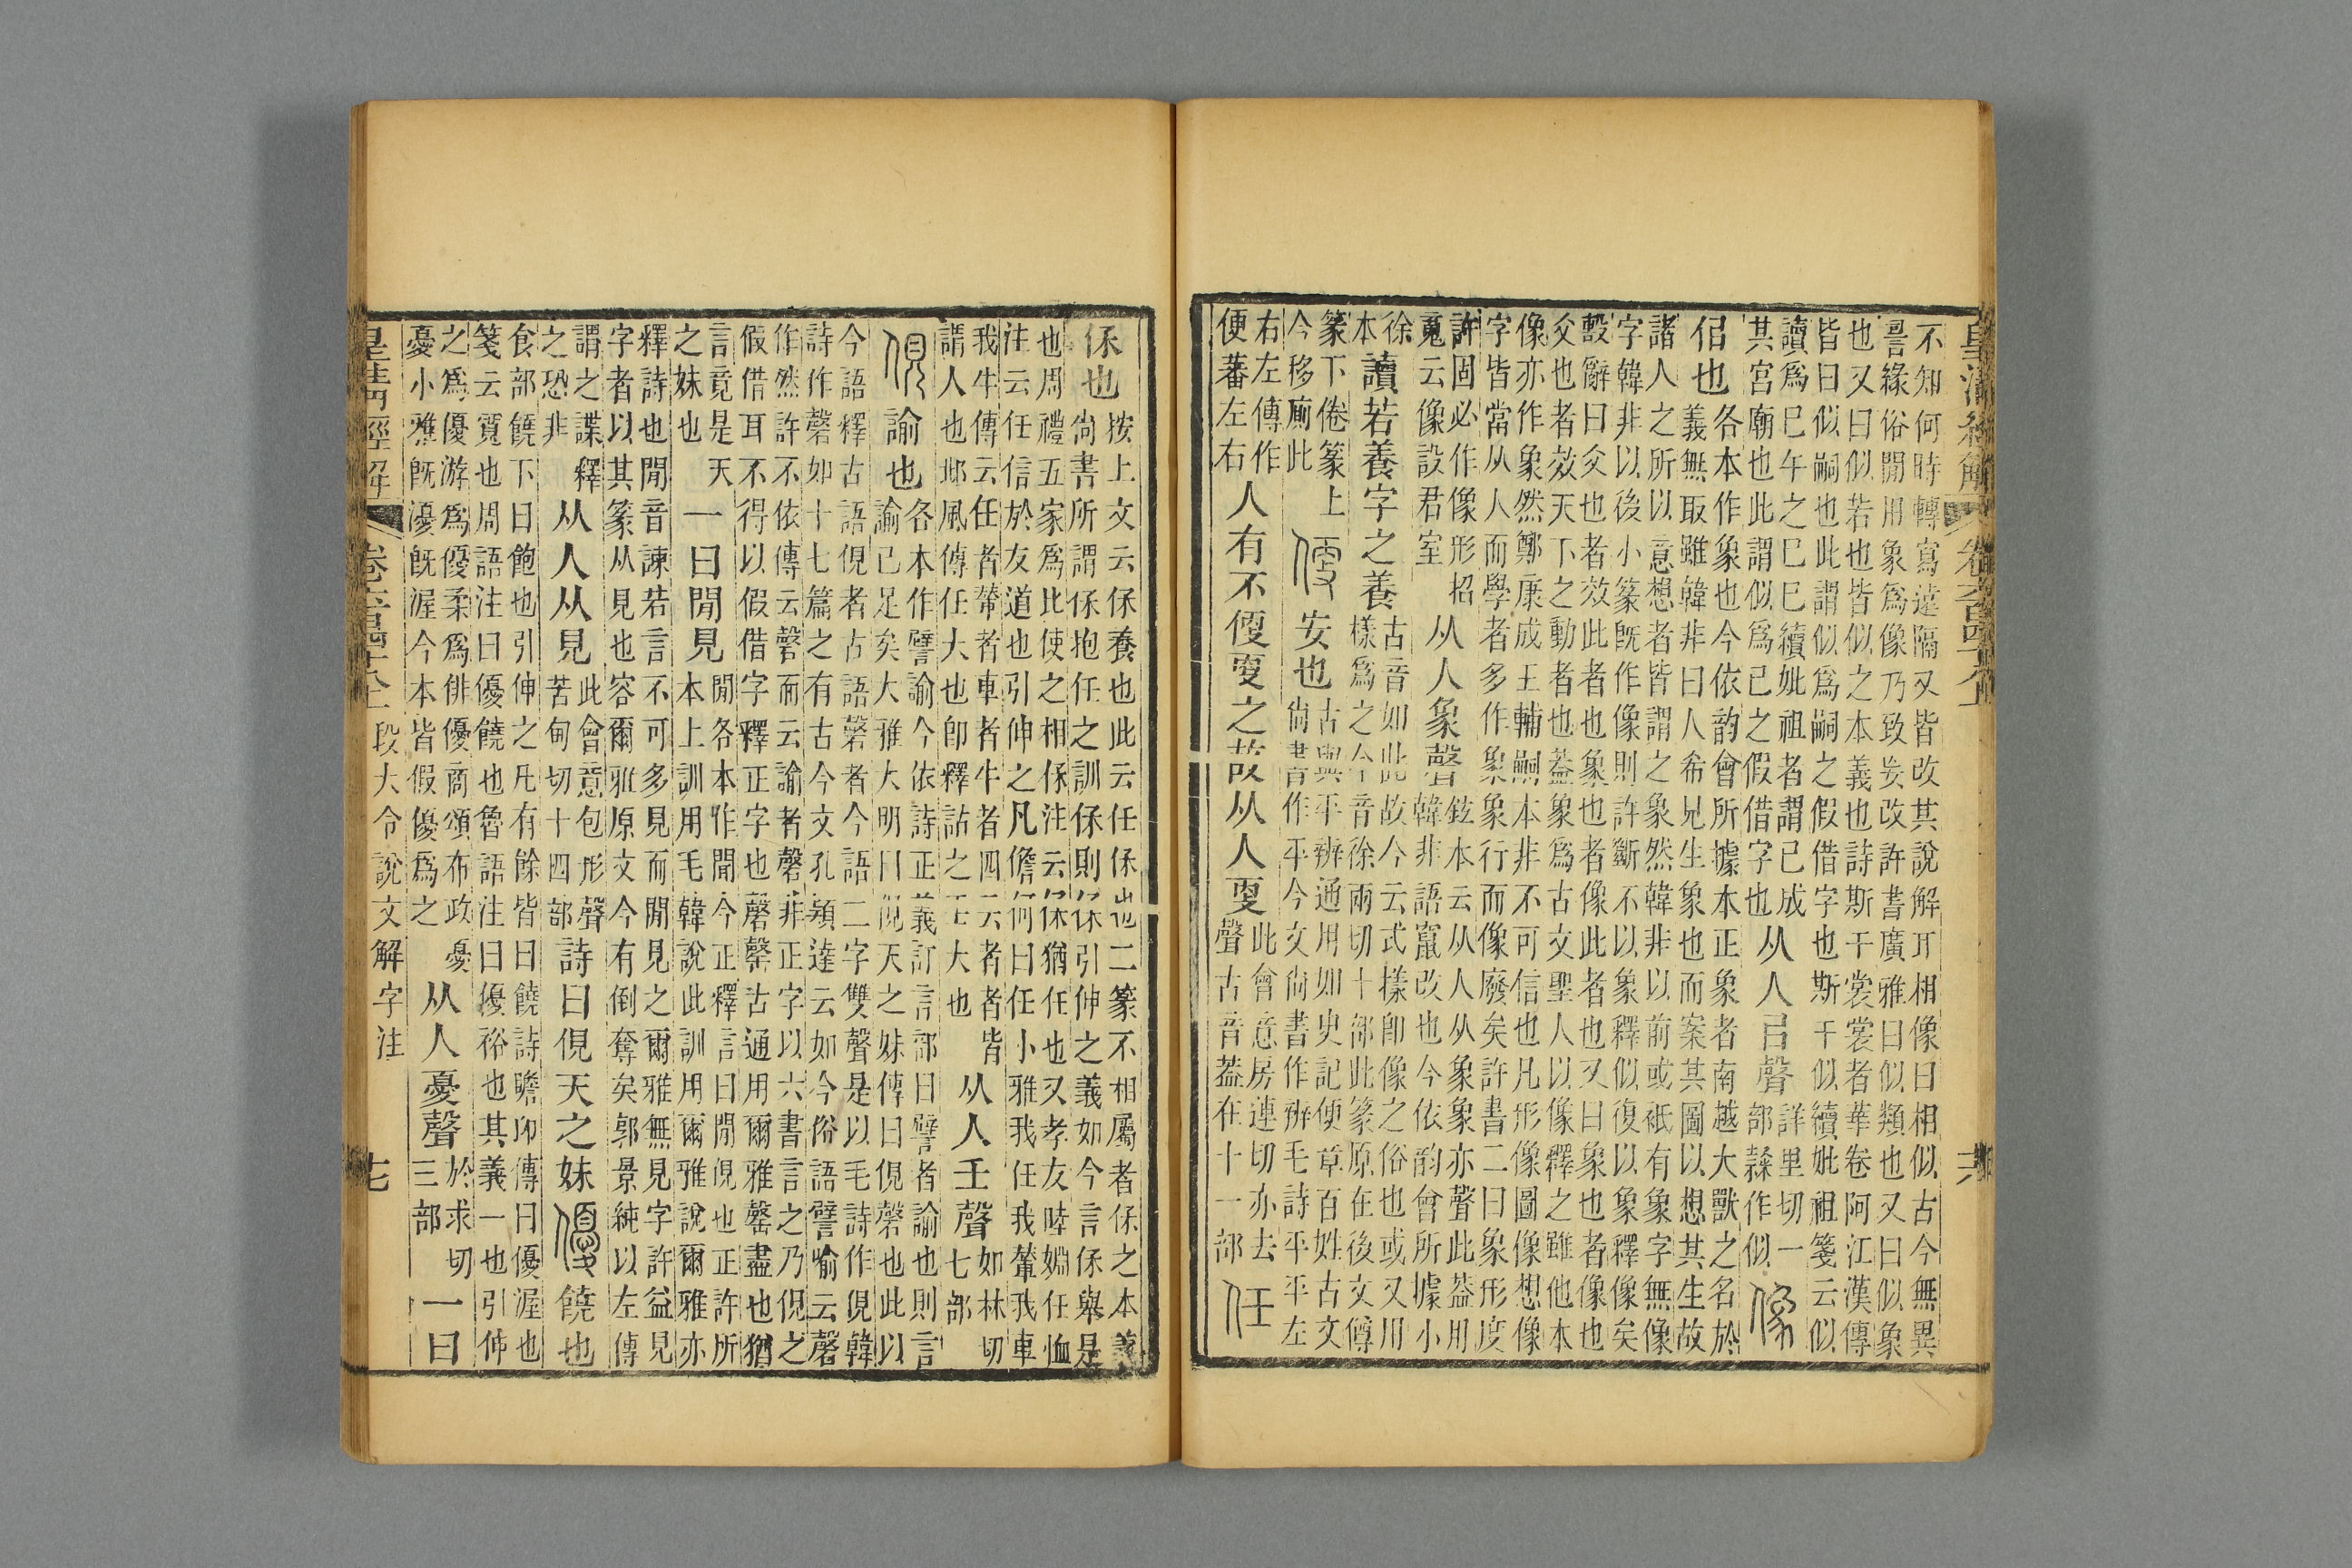 皇淸經解
不知何時轉寫遠隔又皆改其說解耳相像曰相似古今無異
詈緣俗閒用象爲像乃致妄改許書廣雅曰似類也又曰似象
也又曰似若也皆似之本義也詩斯干裳裳者華卷阿江漢傳
皆曰似嗣也此謂似爲嗣之假借字也斯干似續妣祖箋云似
讀爲巳午之巳巳續妣祖者謂已成
其宮廟也此謂似爲已之假借字也
从人㠯聲
詳里切一
部隸作似
像
佀也
各本作象也今依韵會所據本正象者南越大獸之名於
義無取雖韓非曰人希見生象也而案其圖以想其生故
諸人之所以意想者皆謂之象然韓非以前或衹有象字無像
字韓非以後小篆旣作像則許斷不以象釋似復以象釋像矣
毄辭曰爻也者效此者也象也者像此者也又曰象也者像也
爻也者效天下之動者也葢象爲古文聖人以像釋之雖他本
像亦作象然鄭康成王輔嗣本非不可信也凡形像圖像想像
字皆當从人而學者多作象象行而像廢矣許書二曰象形度
許固必作像形招
䰟云像設君室
从人象聲
鉉本云从人从象象亦聲此葢用
韓非語竄改也今依韵會所據小
徐
本
讀若養字之養
古音如此故今云式樣卽像之俗也或又用
樣爲之今音徐兩切十部此篆原在後文僔
篆下倦篆上
今移廁此
㑮
安也
古與平辨通用如史記便章百姓古文
尙書作平今文尙書作辨毛詩平平左
右左傳作
便蕃左右
人有不㑮㪅之故从人㪅
此會意房連切亦去
聲古音葢在十一部
任
保也
按上文云保養也此云任保也二篆不相屬者保之本義
尙書所謂保抱任之訓保則保引伸之義如今言保舉是
也周禮五家爲比使之相保注云保猶任也又孝友睦婣任恤
注云任信於友道也引伸之凡儋何曰任小雅我任我輦我車
我牛傳云任者輦者車者牛者四云者者皆
謂人也邶風傳任大也卽釋詁之壬大也
从人壬聲
如林切
七部
俔
諭也
各本作譬諭今依詩正義訂言部曰譬者諭也則言
諭已足矣大雅大明曰俔天之妹傳曰俔磬也此以
今語釋古語俔者古語磬者今語二字雙聲是以毛詩作俔韓
詩作磬如十七篇之有古今文孔穎達云如今俗語譬喻云磬
作然許不依傳云磬而云諭者磬非正字以六書言之乃俔之
假借耳不得以假借字釋正字也磬罄古通用爾雅罄盡也猶
言竟是天
之妹也
一曰閒見
閒各本作聞今正釋言曰閒俔也正許所
本上訓用毛韓說此訓用爾雅說爾雅亦
釋詩也閒音諫若言不可多見而閒見之爾雅無見字許益見
字者以其篆从見也容爾雅原文今有倒奪矣郭景純以左傳
謂之諜釋
之恐非
从人从見
此會意包形聲
苦甸切十四部
詩曰俔天之妹
優
饒也
食部饒下曰飽也引伸之凡有餘皆曰饒詩瞻卬傳曰優渥也
箋云寬也周語注曰優饒也魯語注曰優裕也其義一也引伸
之爲優游爲優柔爲俳優商頌布政憂
憂小雅旣優旣渥今本皆假優爲之
从人憂聲
於求切
三部
一曰
皇淸經解
段大令說文解字注